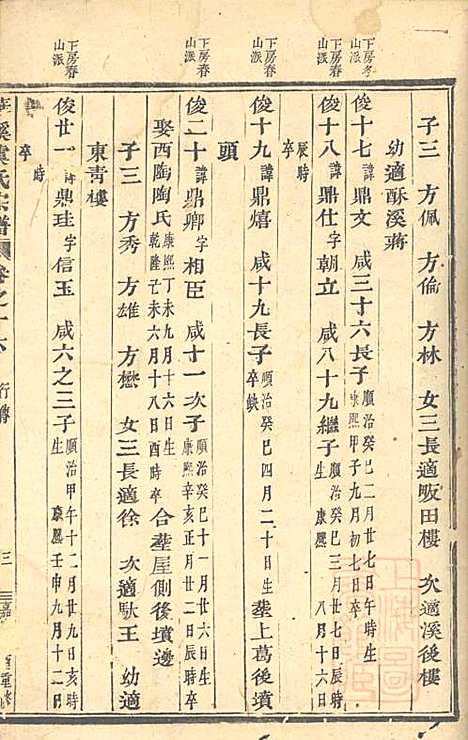 子三 方佩 方倫 方林 女三長適畈田樓 次適溪後樓
幼適酥溪蔣
下房孝山派
俊十七諱鼎文 咸三十六長子順治癸巳二月廿七日午時生康熙甲子九月初七日卒
下房春山派
俊十八諱鼎仕字朝立 咸八十九繼子順治癸巳三月廿七日辰時生康熙 八月十六日辰時卒
下房春山派
俊十九諱鼎熺 咸十九長子順治癸巳四月二十日生卒缺 塟上葛後墳
頭
下房春山派
俊二十諱鼎卿字相臣 咸十一次子順治癸巳十一月廿六日生康熙辛亥正月廿二日辰時卒
娶西陶陶氏康熙丁未九月十六日生乾隆己未六月十八日酉時卒 合塟屋側後墳邊
子三 方秀 方雄 方懋 女三長適徐 次適䭾王 幼適
東青樓
下房春山派
俊廿一諱鼎珪字信玉 咸六之三子順治甲午十二月廿九日亥時生康熙壬申九月十二日 時卒
溪虞氏宗譜 卷之十六 行傳 三